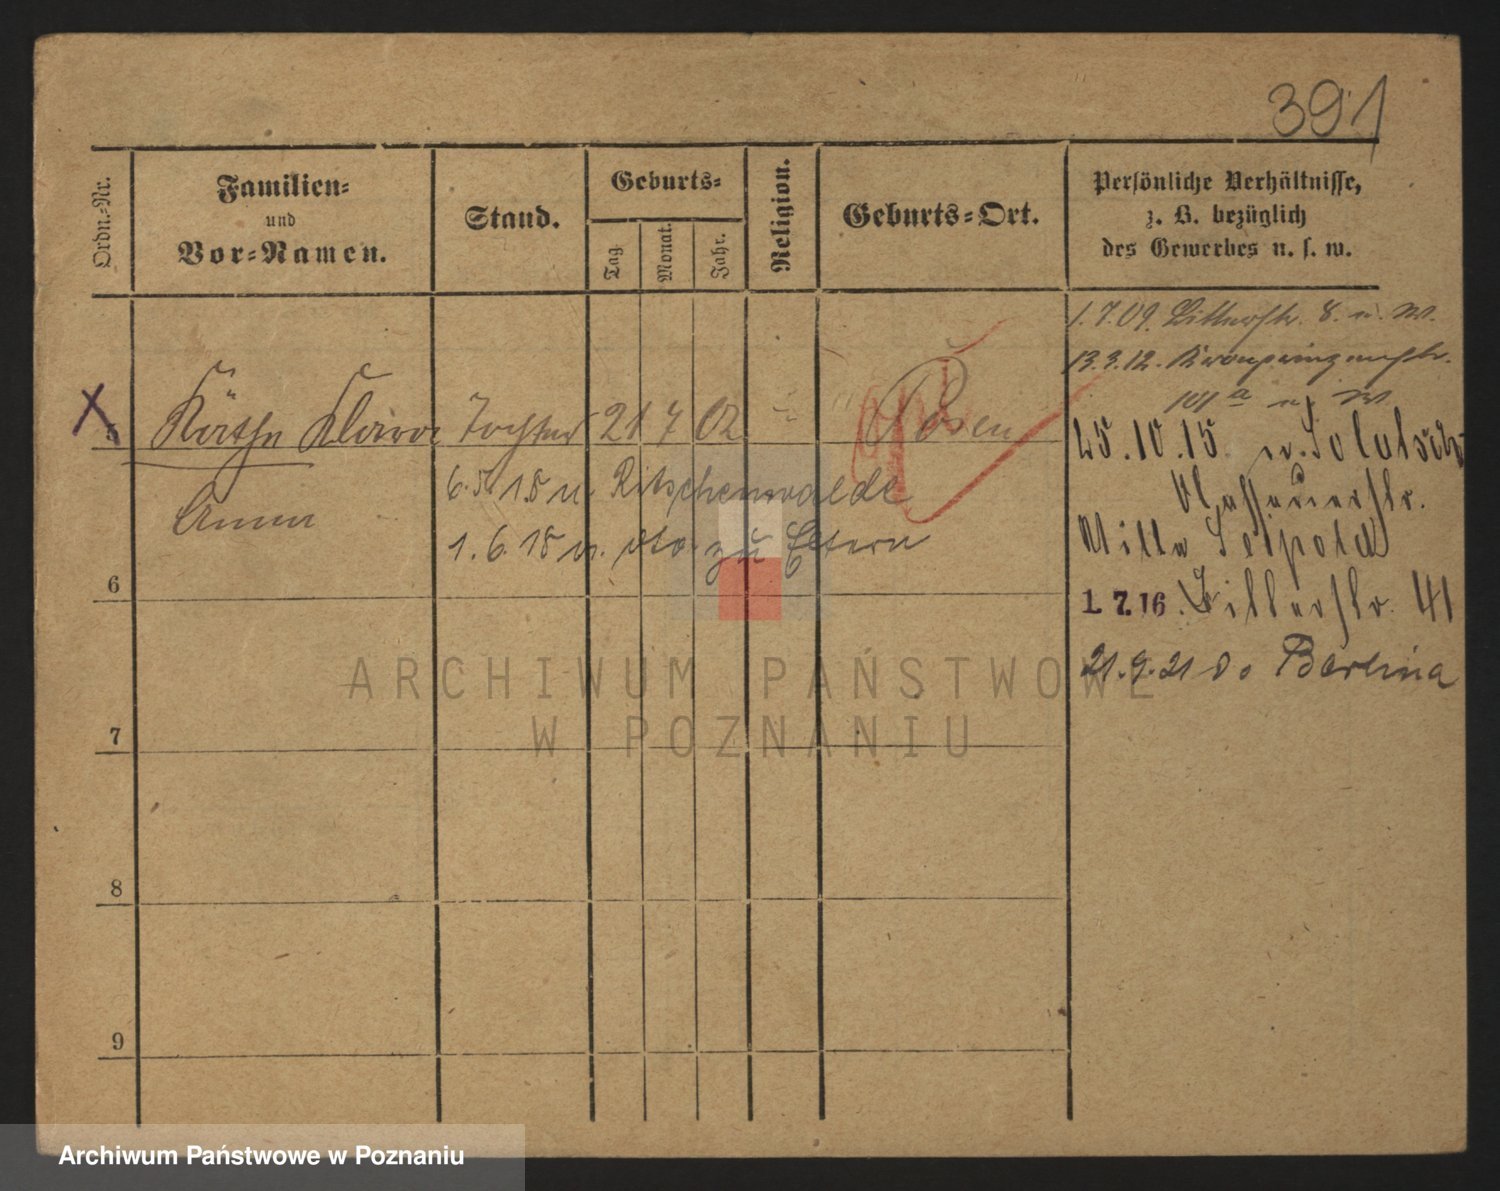 391
Ordn.-Nr.
Familien-
und
Vor-Namen.
Stand.
Geburts-
Tag
Monat.
Jahr.
Religion.
Geburts-Ort.
Persönliche Verhältnisse,
z. B. bezüglich
des Gewerbes u. s. w.
1.7.09. 8. u. W.
13.3.12. Kronprinzenstr.
101 a u. W
X 5 Käthe Klara Tochter 21 7 02 " Posen
25.10.15. n.
6.5.18 n. Ritschenwalde
Anna
Villa Leopold
1.6.18 v. dto. zu Eltern
6
1.7.16. 41
21.9.21 Do Berlina
ARCHIWUM PAŃSTWOWE
W POZNANIU
7
8
9
Archiwum Państwowe w Poznaniu